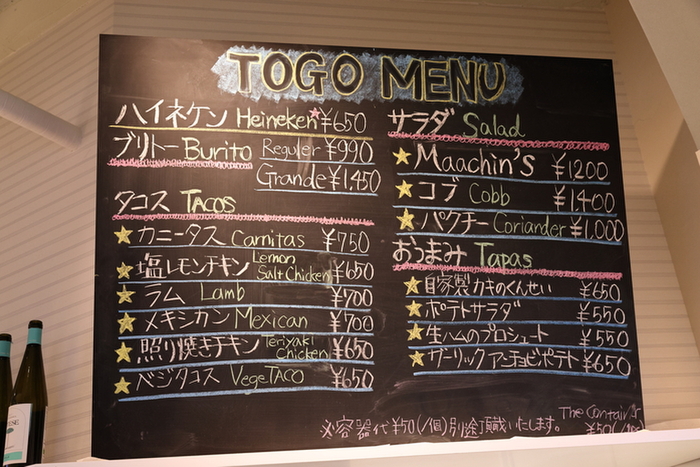 TOGO MENU
ハイネケン Heineken ¥650
ブリトー Burito Reguler ¥990
Grande ¥1,450
タコス TACOS
カニータス Carnitas ¥750
塩レモンチキン Lemon Salt Chicken ¥650
ラム Lamb ¥700
メキシカン Mexican ¥700
照り焼きチキン Teriyaki Chicken ¥650
ベジタコス VegeTACO ¥650
サラダ Salad
Maachin's ¥1200
コブ Cobb ¥1400
パクチー Coriander ¥1,000
おつまみ Tapas
自家製カキのくんせい ¥650
ポテトサラダ ¥550
生ハムのプロシュート ¥550
ガーリックアンチョビポテト ¥650
※容器代¥50(/個)別途頂戴いたします。
The Container
¥50(/1pc